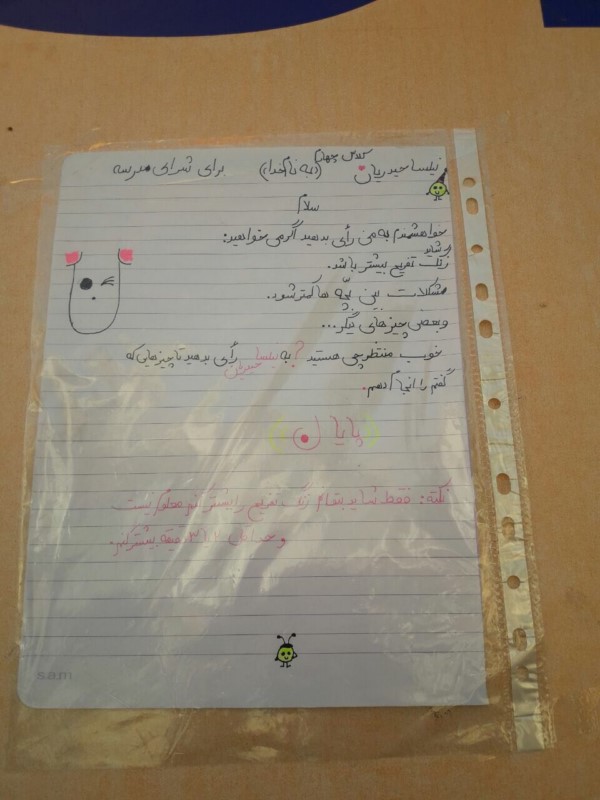 نیلسا حیدریان کلاس چهارم (به نام خدا) برای شورای مدرسه
سلام
خواهشمندم به من رأی بدهید اگر می خواهید:
شاید
زنگ تفریح بیشتر باشد.
مشکلات بین بچّه ها کمتر شود.
و بعضی چیزهای دیگر...
خوب منتظر چی هستید؟ به نیلسا حیدریان رأی بدهید تا چیزهایی که
گفتم را انجام دهم.
(پایان)
نکته: فقط شاید بتوانم زنگ تفریح را بیشتر کنم معلوم نیست
و حداقل ۲ ۳ دقیقه بیشتر
s.a.m